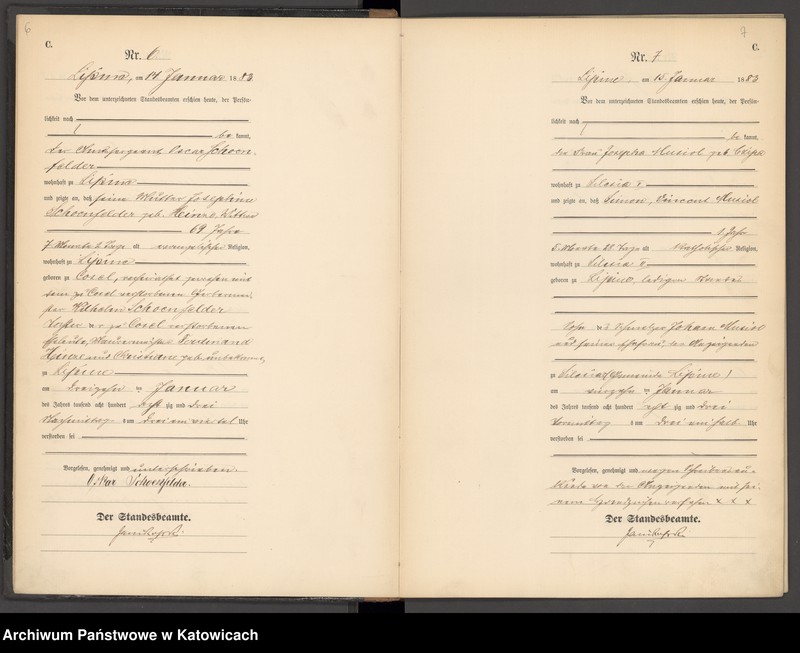 6
C.
Nr. 6
Lipine, am 14 Januar 1883
Vor dem unterzeichneten Standesbeamten erschien heute, der Persön-
lichkeit nach
be kannt,
der Oscar Schoen-
felder
wohnhaft zu Lipine
und zeigte an, daß seine Mutter Josephine
Schoenfelder geb. Heinze, Wittwe
69 Jahre
7 Monate 2 Tage alt, evangelischer Religion,
wohnhaft zu Lipine
geboren zu Cosel, verheirathet gewesen mit
dem zu Cosel verstorbenen
Wilhelm Schoenfelder
Tochter der zu Cosel verstorbenen
Eheleute, Ferdinand
Heinze und Christiane geb. unbekannt,
zu Lipine
am Dreizehn ten Januar
des Jahres tausend acht hundert acht zig und Drei
Nachmittags um Drei ein viertel Uhr
verstorben sei
Vorgelesen, genehmigt und unterschrieben.
Oskar Schoenfelder.
Der Standesbeamte.
7
C.
Nr. 7
Lipine, am 15 Januar 1883
Vor dem unterzeichneten Standesbeamten erschien heute, der Persön-
lichkeit nach
be kannt,
die Frau Josepha Musiol geb.
wohnhaft zu Silesia
und zeigte an, daß Simon, Vincent Musiol
1 Jahr
Monate Tage alt Katholischer Religion,
wohnhaft zu Silesia
geboren zu Lipine, ledigen Standes
Sohn des Johann Musiol
und seiner Ehefrau, der Anzeigenden
zu Silesia (Gemeinde Lipine)
am vierzehn ten Januar
des Jahres tausend acht hundert acht zig und Drei
Vormittag um Drei ein halb Uhr
verstorben sei
Vorgelesen, genehmigt und wegen Schreibensun-
kunde von der Anzeigenden mit ih-
rem Handzeichen versehen x x x
Der Standesbeamte.
Archiwum Państwowe w Katowicach